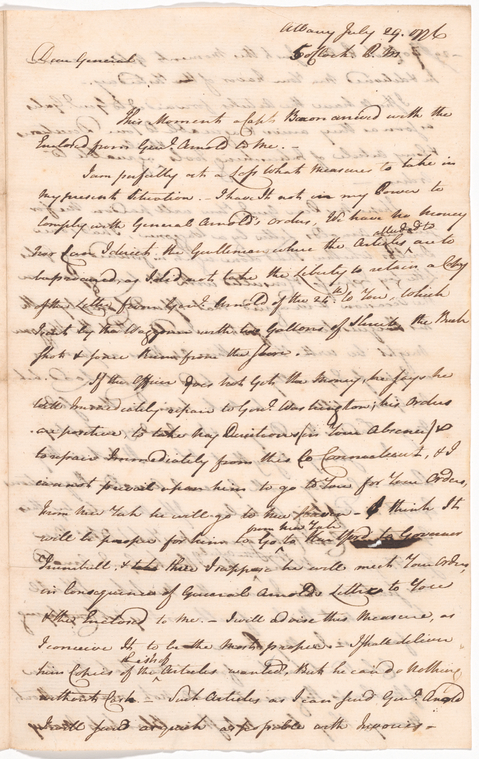 Albany July 29. 1776
5 oClock P. M.
Dear General
This Moment a Capt Bacon arrived with the
Enclosd from Genl. Arnold to me. —
I am perfectly at a Loss what measures to take in
my present Situation. — I have It not in my Power to
Comply with General Arnold's orders, We have no Money
Nor Can I direct the Gentleman, where the Articles alluded to are to
be procured, as I did not take the Liberty to retain a Copy
of the Letter from Genl. Arnold of the 24th. to You, which
I sent by the Waggoner with Gallons of the Bush
Shott & some Rum from the Store.
If the Officer does not Get the Money, he says he
will Immediately repair to Genl. Washington; his Orders
are positive, to take Directions (in Your Absence) &
to repair Immediately from this to Connecticut, & I
cannot prevail upon him to go to You for Your Orders,
from New York he will go to — I think It
will be proper for him to Go from New York to Governor
Trumbull, & there I suppose he will meet Your Orders,
in Consequence of General Arnolds Letter to You
& the Enclosed to me. — I will advise this Measure, as
I conceive It, to be the most proper. — I shall deliver
him Copies of the List of Articles wanted, But he can do Nothing
without Cash — Such Articles as I can send Genl. Arnold
I will send as quick as possible with Invoices —